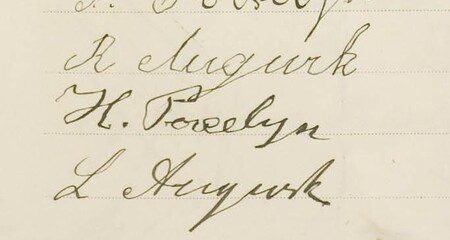 R Augurk
H. Porcelyn
L Augurk